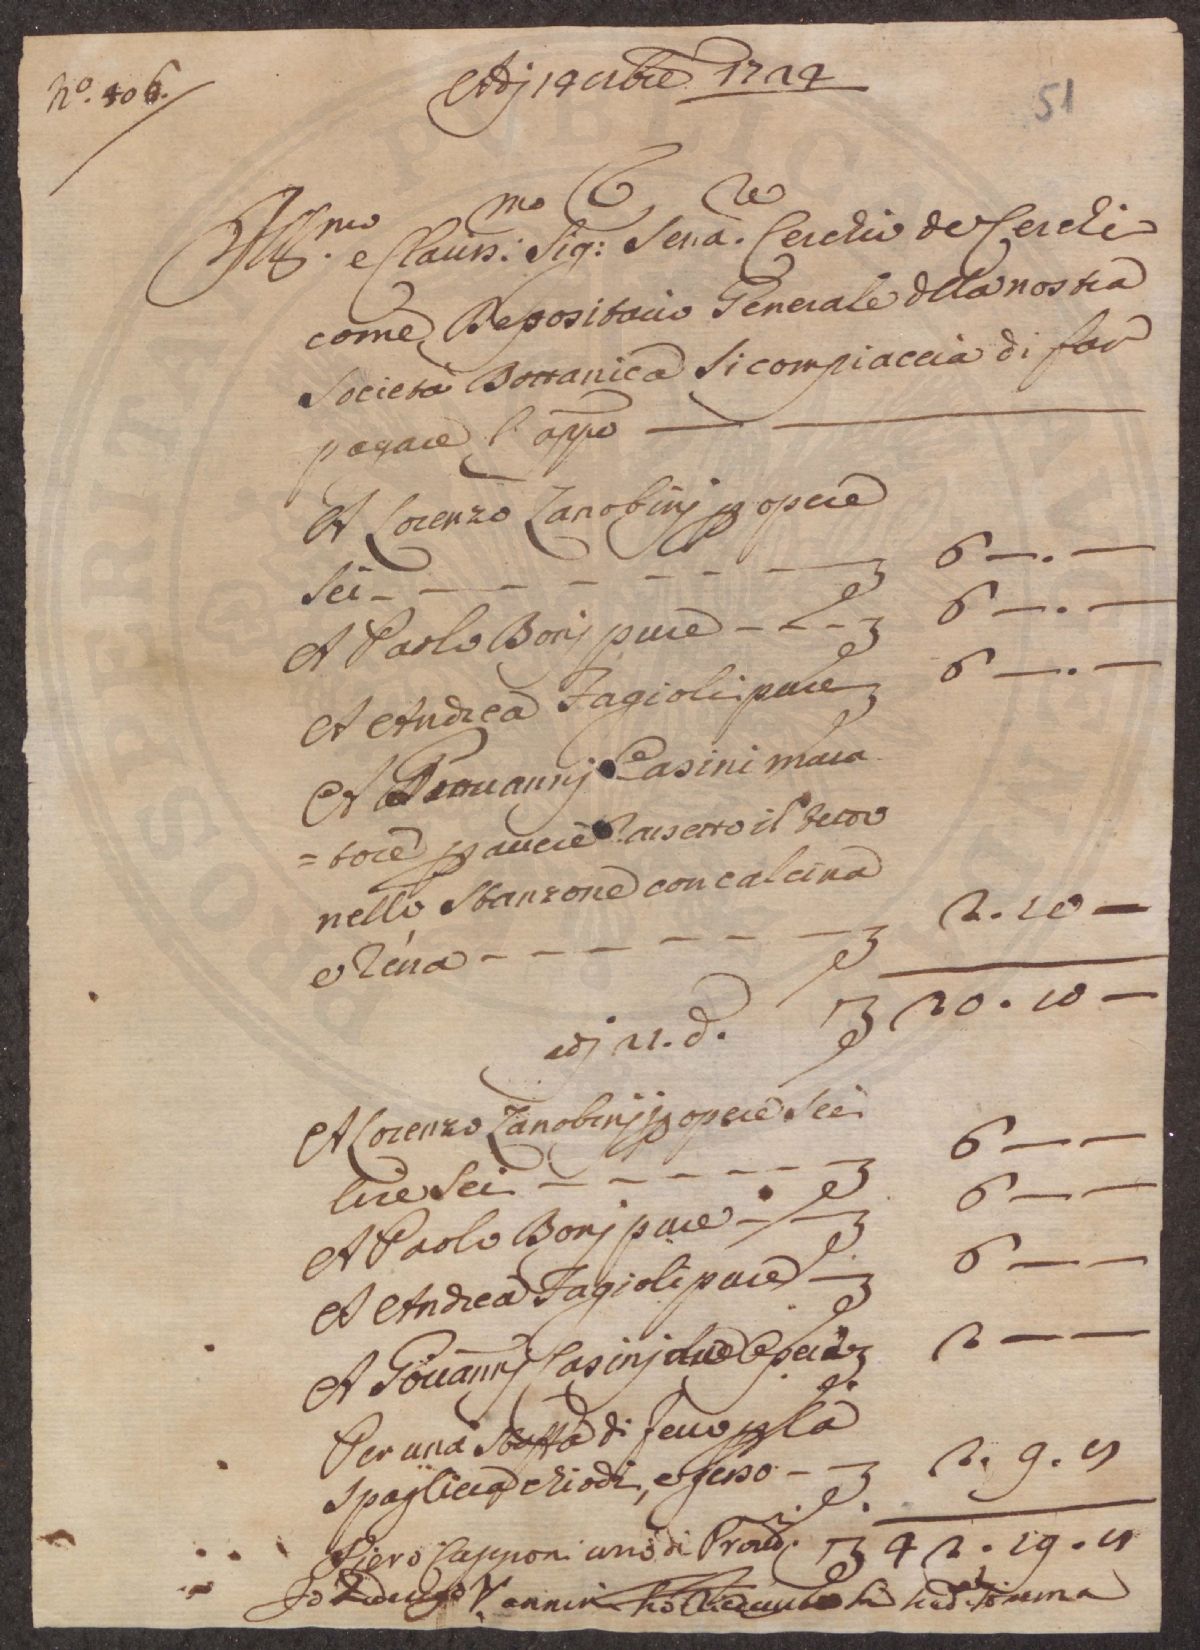 N.º 406.
Adj 14 xbre 1724
51
Ill.mo e Clariss.mo Sig: Sena.re Cerchio de Cerchi
come Depositario Generale della nostra
Società Bottanica si compiaccia di far
pagare l'app.o
A Lorenzo Zanobinj p opere
sei 6 —. —
A Paolo Bonj pure 6 —. —
A Andrea Fagioli pure 6 —. —
A Giouannj Casini mura
=tore p auere rasetto il tetto
nello Stanzone con calcina
e rena 2. 10 —
20. 10 —
adj 21. d.o
A Lorenzo Zanobinj p opere sei
lire sei 6 — —
A Paolo Bonj pure 6 — —
A Andrea Fagioli pure 6 — —
A Giouannj Casinj due opere 2 — —
Per una Staffa di ferro p la
spagliera chiodi, e gesso 2. 9. 4
Piero Capponi uno di Proud.i 42. 19. 4
Io Vannini ho riceuuto la sud.a somma